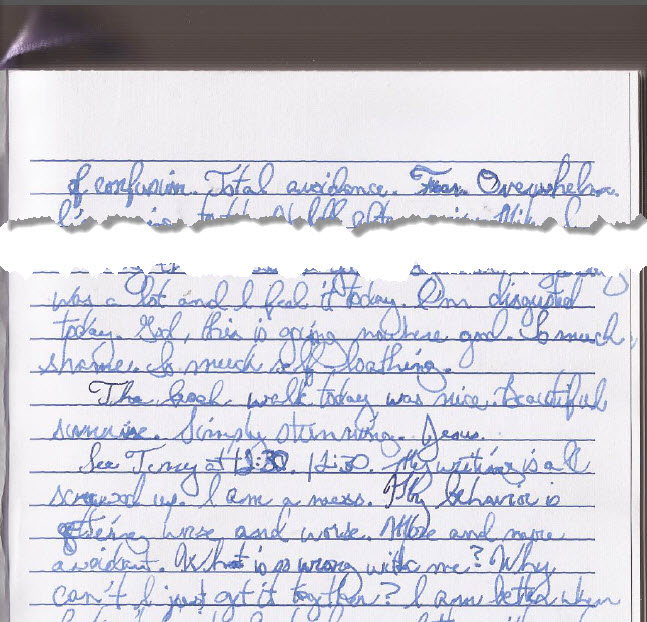 of confusion. Total avoidance. Fear. Overwhelm.
was a lot and I feel it today. I'm disgusted
today. God, this is going nowhere good. So much
shame. So much self loathing.
The beach walk today was nice. Beautiful
sunrise. Simply stunning. Jesus.
See Terry at 12:30. 12:30. My writing is all
screwed up. I am a mess. My behavior is
getting worse and worse. More and more
avoidant. What is so wrong with me? Why
can't I just get it together? I am better when